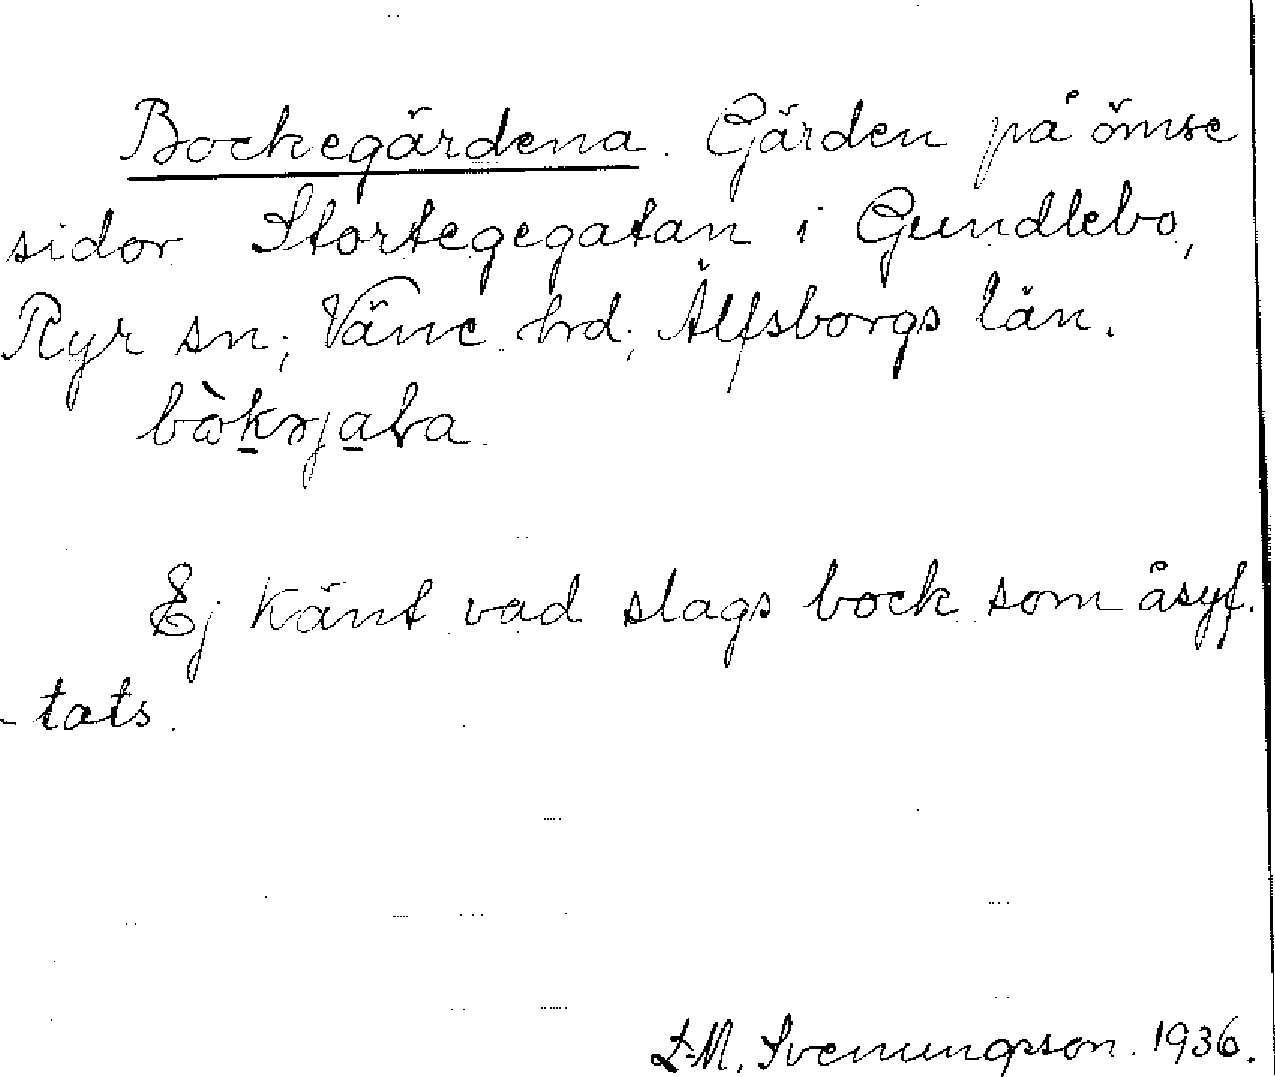 Bockegärdena. Gärden på ömse
sidor Stortegegatan i Gundlebo,
Ryr sn; Väne hrd; Älfsborgs län.
Ej känt vad slags bock som åsyf-
-tats.
L-M. Svenungsson. 1936.